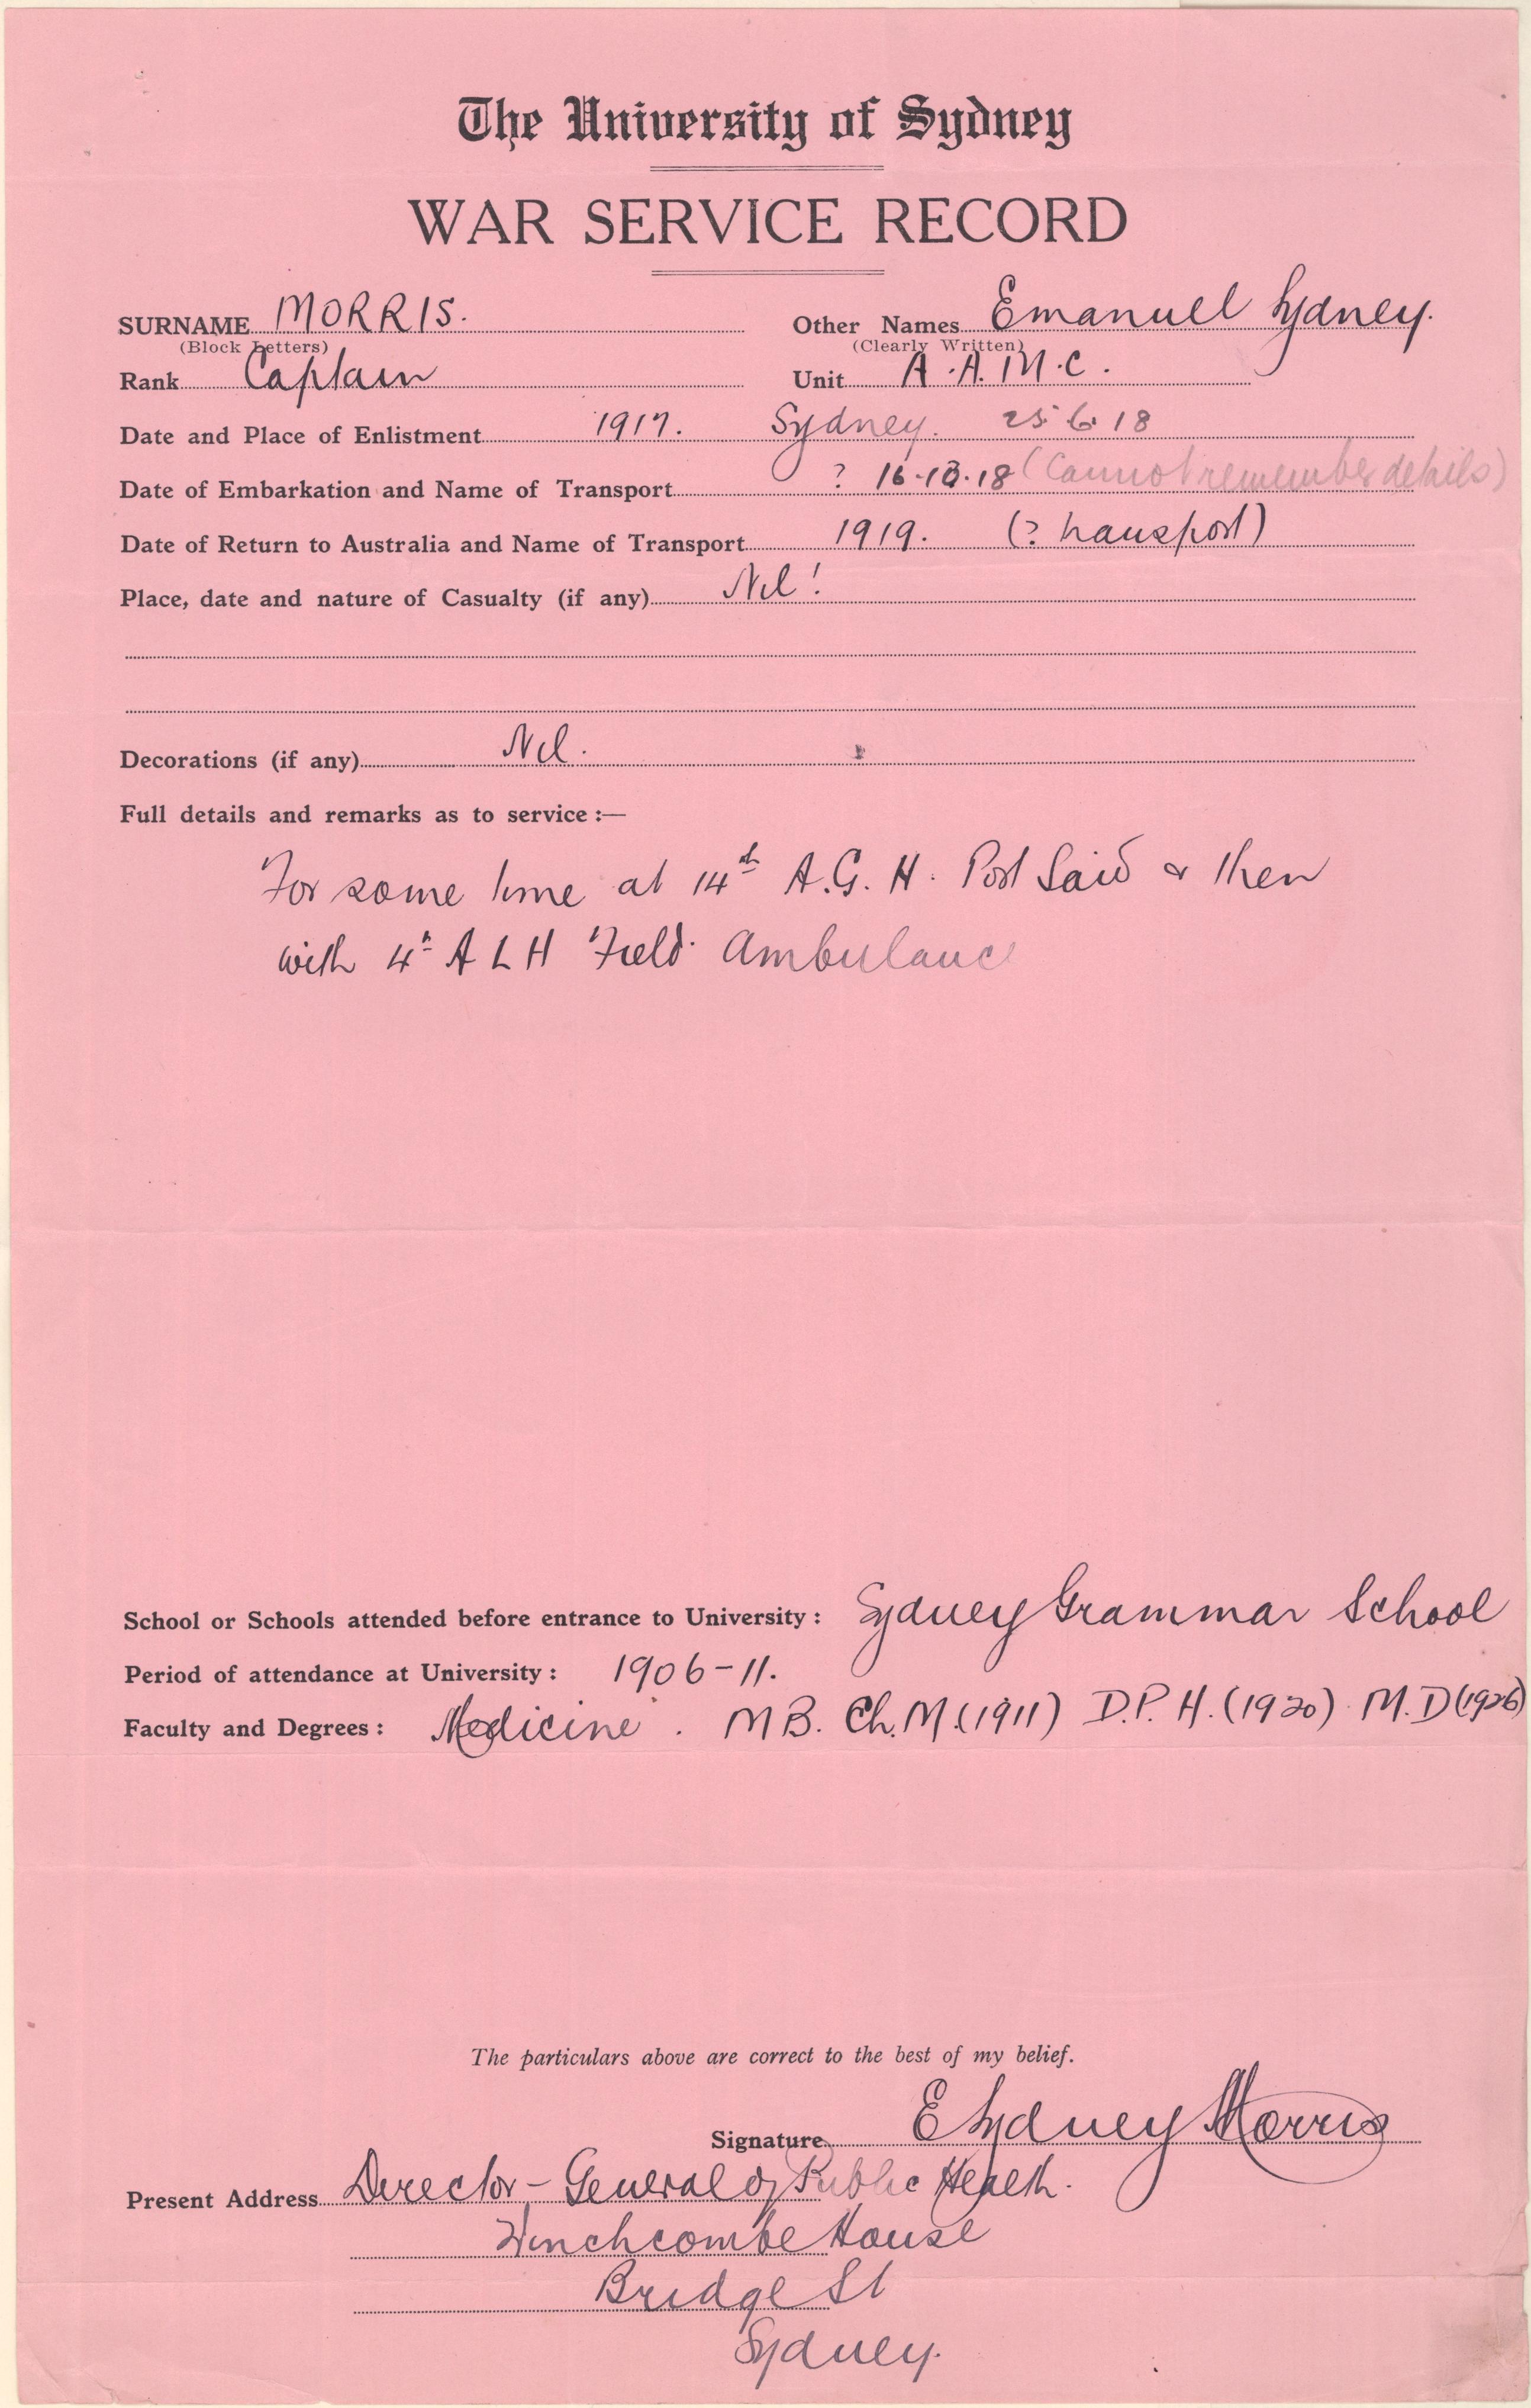 The University of Sydney
WAR SERVICE RECORD
SURNAME MORRIS. Other Names Emanuel Sydney.
(Block Letters) (Clearly Written)
Rank Captain Unit A.A.M.C.
Date and Place of Enlistment 1917. Sydney. 25.6.18
Date of Embarkation and Name of Transport ? 16.10.18 (Cannot remember details)
Date of Return to Australia and Name of Transport 1919. (? transport)
Place, date and nature of Casualty (if any) Nil!
Decorations (if any) Nil.
Full details and remarks as to service :—
For some time at 14th A.G.H. Port Said & then
with 4th A L H Field Ambulance
School or Schools attended before entrance to University : Sydney Grammar School
Period of attendance at University : 1906-11.
Faculty and Degrees : Medicine. MB. Ch.M. (1911) D.P.H. (1920) M.D (1926)
The particulars above are correct to the best of my belief.
Signature E Sydney Morris
Present Address Director-General of Public Health.
Winchcombe House
Bridge St
Sydney.